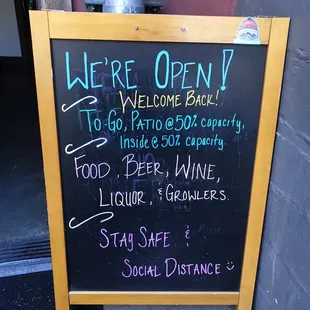 WE'RE OPEN!
WELCOME BACK!
TO-GO, PATIO @ 50% capacity,
INSIDE @ 50% capacity.
FOOD, BEER, WINE,
LIQUOR, & GROWLERS.
STAY SAFE &
SOCIAL DISTANCE